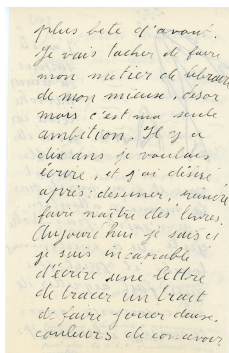 plus bête q'avant.
Je vais tacher de faire
mon metier de libraire
de mon mieux, désor
mais c'est ma seule
ambition. Il y a
dix ans je voulais
écrire, et j'ai désiré
après: dessiner, peindre
faire naître des livres.
Aujourd'hui je sais
je suis incapable
d'écrire une lettre
de tracer un trait
de faire jouer deux
couleurs de concevoir